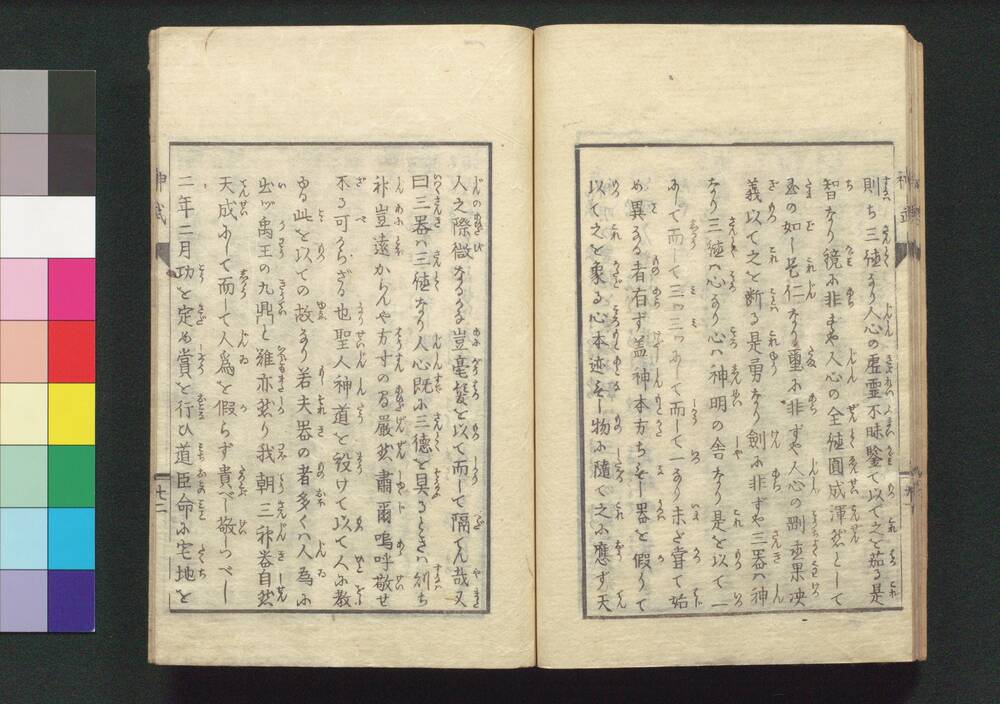 則ち三徳なり人心の虚霊不昧鑒て以て之を茹る是
智なり鏡に非ずや人心の全徳圓成渾然として
玉の如し是仁なり璽に非ずや人心の剛毅果决
義以て之を断る是勇なり劍に非ずや三器ハ神
なり三徳ハ心なり心ハ神明の舎なり是を以て一
にして而して三つ三つにして而して一なり未と嘗て始
め異なる者有ず蓋神本方ちなし器を假りて
以て之を象る心本迹なし物に隨て之に應ず天
人之際微なるかな豈毫髪を以て而して隔てん哉又
曰三器ハ三徳なり人心既に三德を具るときハ則ち
神豈遠からんや方寸の間嚴然肅爾嗚呼敬せ
ざる可からざる也聖人神道を設けて以て人に教
ゆる此を以ての故なり若夫器の者多くハ人為に
出づ禹王の九鼎と雖亦然り我朝三神器自然
天成にして而して人為を假らず貴べし敬しつべし
二年二月功を定め賞を行ひ道臣命に宅地を
神武
七二